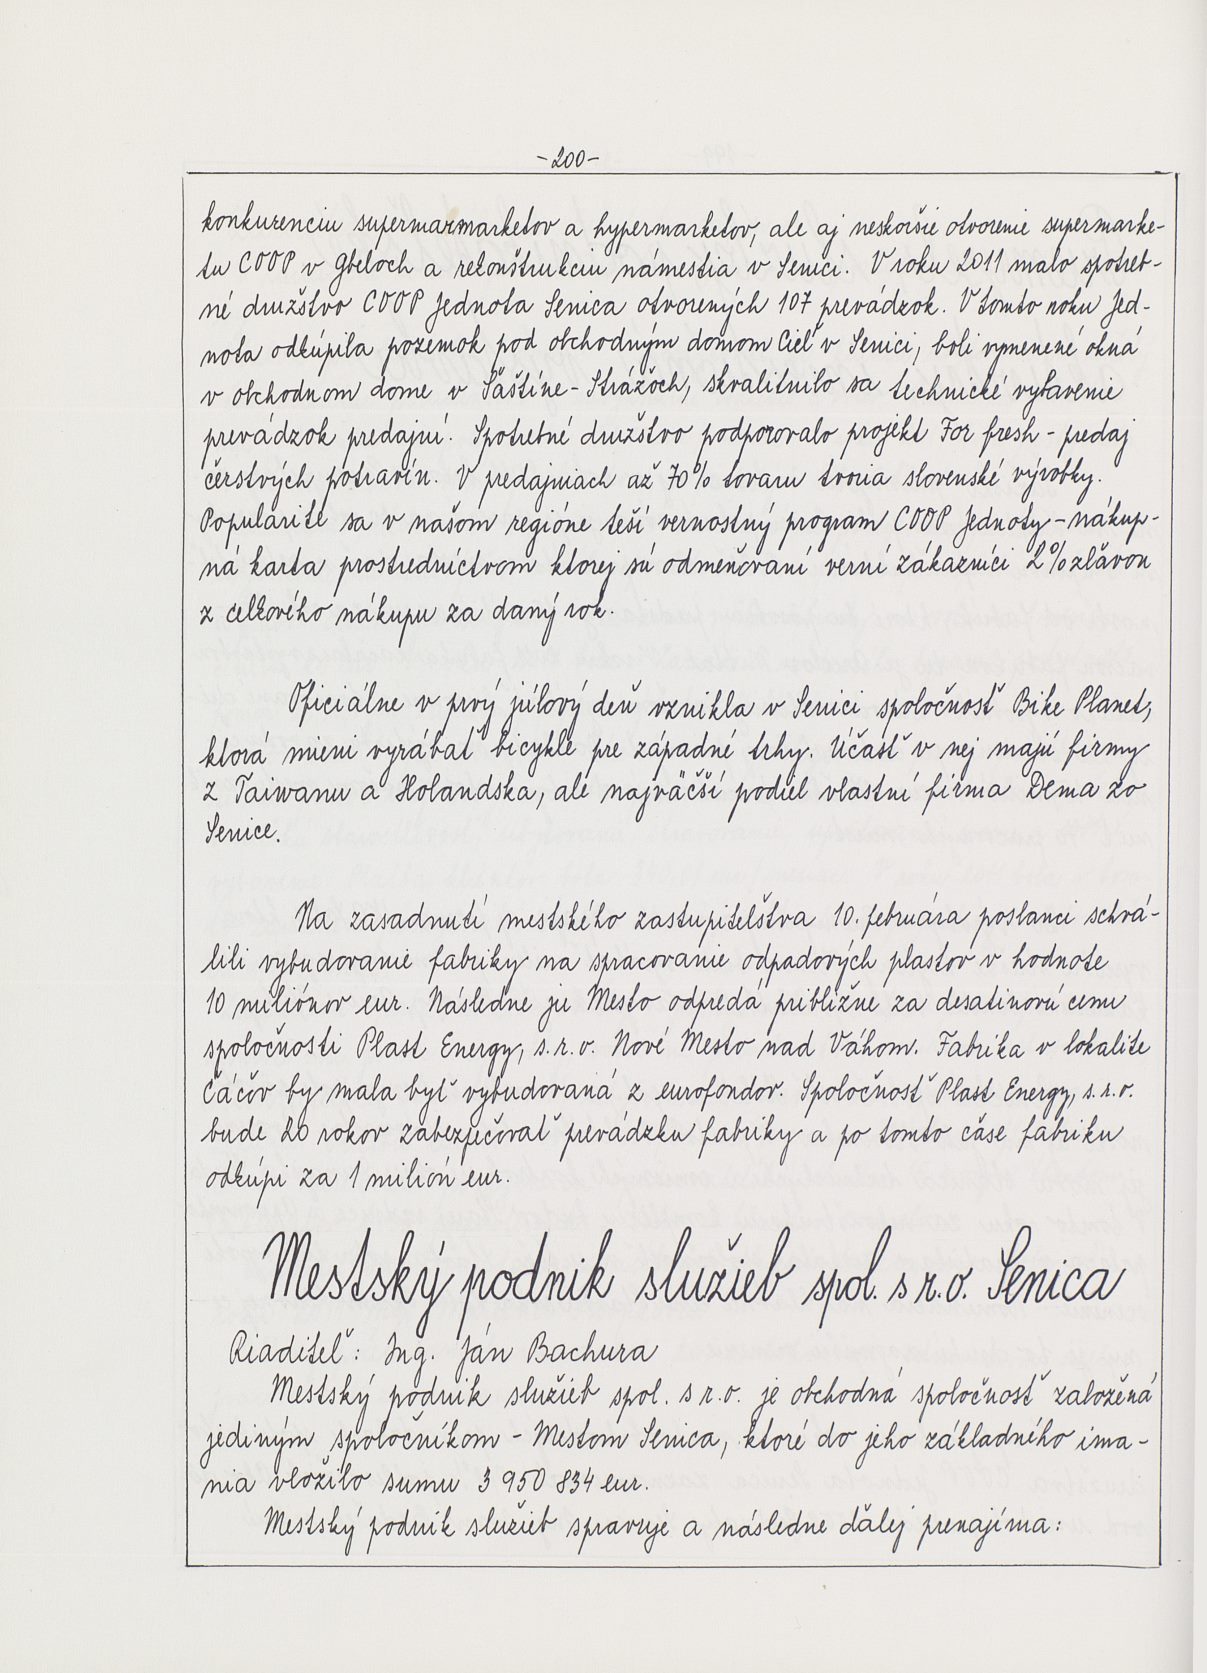 -200-
konkurenciu supermarmarketov a hypermarketov, ale aj neskoršie otvorenie supermarke-
tu COOP v Gbeloch a rekonštrukciu námestia v Senici. V roku 2011 malo spotreb-
né družstvo COOP Jednota Senica otvorených 107 prevádzok. V tomto roku Jed-
nota odkúpila pozemok pod obchodným domom Cieľ v Senici, boli vymenené okná
v obchodnom dome v Šaštíne-Strážoch, skvalitnilo sa technické vybavenie
prevádzok predajní. Spotrebné družstvo podporovalo projekt For fresh - predaj
čerstvých potravín. V predajniach až 70% tovaru tvoria slovenské výrobky.
Popularite sa v našom regióne teší vernostný program COOP Jednoty - nákup-
ná karta prostredníctvom ktorej sú odmeňovaní verní zákazníci 2% zľavou
z celkového nákupu za daný rok.
Oficiálne v prvý júlový deň vznikla v Senici spoločnosť Bike Planet,
ktorá mieni vyrábať bicykle pre západné trhy. Účasť v nej majú firmy
z Taiwanu a Holandska, ale najväčší podiel vlastní firma Dema zo
Senice.
Na zasadnutí mestského zastupiteľstva 10. februára poslanci schvá-
lili vybudovanie fabriky na spracovanie odpadových plastov v hodnote
10 miliónov eur. Následne ju Mesto odpredá približne za desatinovú cenu
spoločnosti Plast Energy, s.r.o. Nové Mesto nad Váhom. Fabrika v lokalite
Čáčov by mala byť vybudovaná z eurofondov. Spoločnosť Plast Energy, s.r.o.
bude 20 rokov zabezpečovať prevádzku fabriky a po tomto čase fabriku
odkúpi za 1 milión eur.
Mestský podnik služieb spol. s r.o. Senica
Riaditeľ: Ing. Ján Bachura
Mestský podnik služieb spol. s r.o. je obchodná spoločnosť založená
jediným spoločníkom - Mestom Senica, ktoré do jeho základného ima-
nia vložilo sumu 3 950 834 eur.
Mestský podnik služieb spravuje a následne ďalej prenajíma: